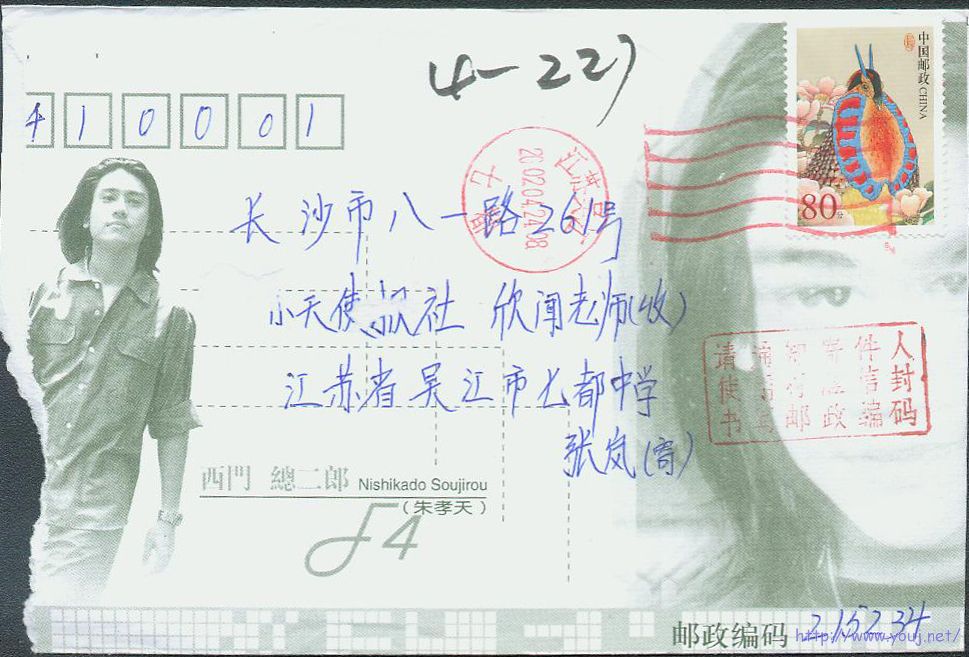 4-227
410001
中国邮政 CHINA
80分
江苏
2002.04.24.08
七都
长沙市八一路261号
小天使报社 欣闻老师(收)
江苏省吴江市七都中学
张岚(寄)
请通知寄件人
使用标准信封
书写邮政编码
西門 總二郎 Nishikado Soujirou
(朱孝天)
F4
邮政编码 215234
http://www.youj.net/